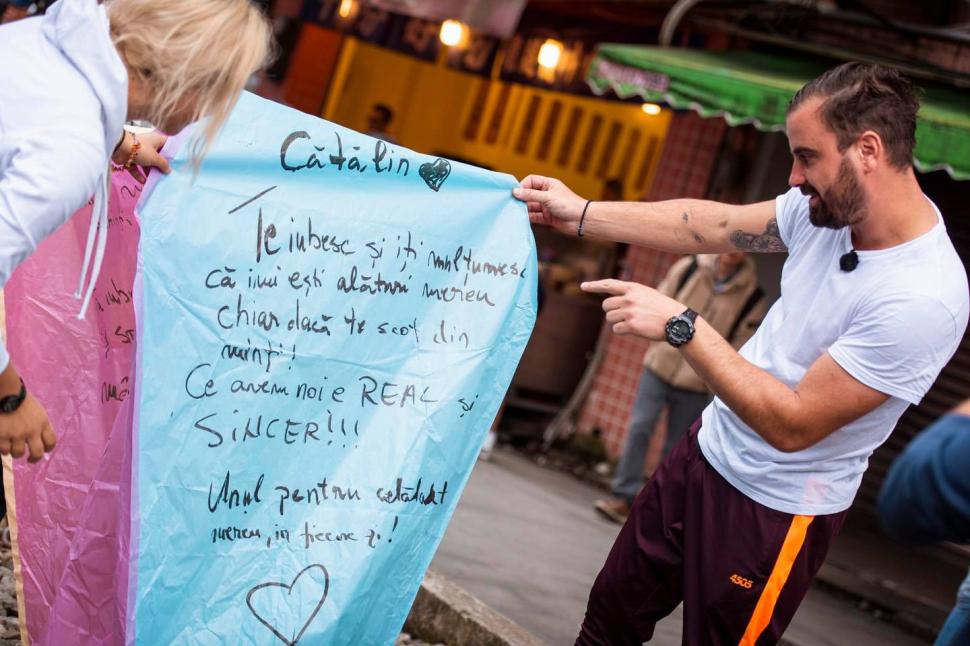 Cătălin
Te iubesc și îți mulțumesc
că îmi ești alături mereu
chiar dacă te scot din
minți!
Ce avem noi e REAL și
SINCER!!!
Unul pentru celălalt
mereu, în fiecare zi!
4505